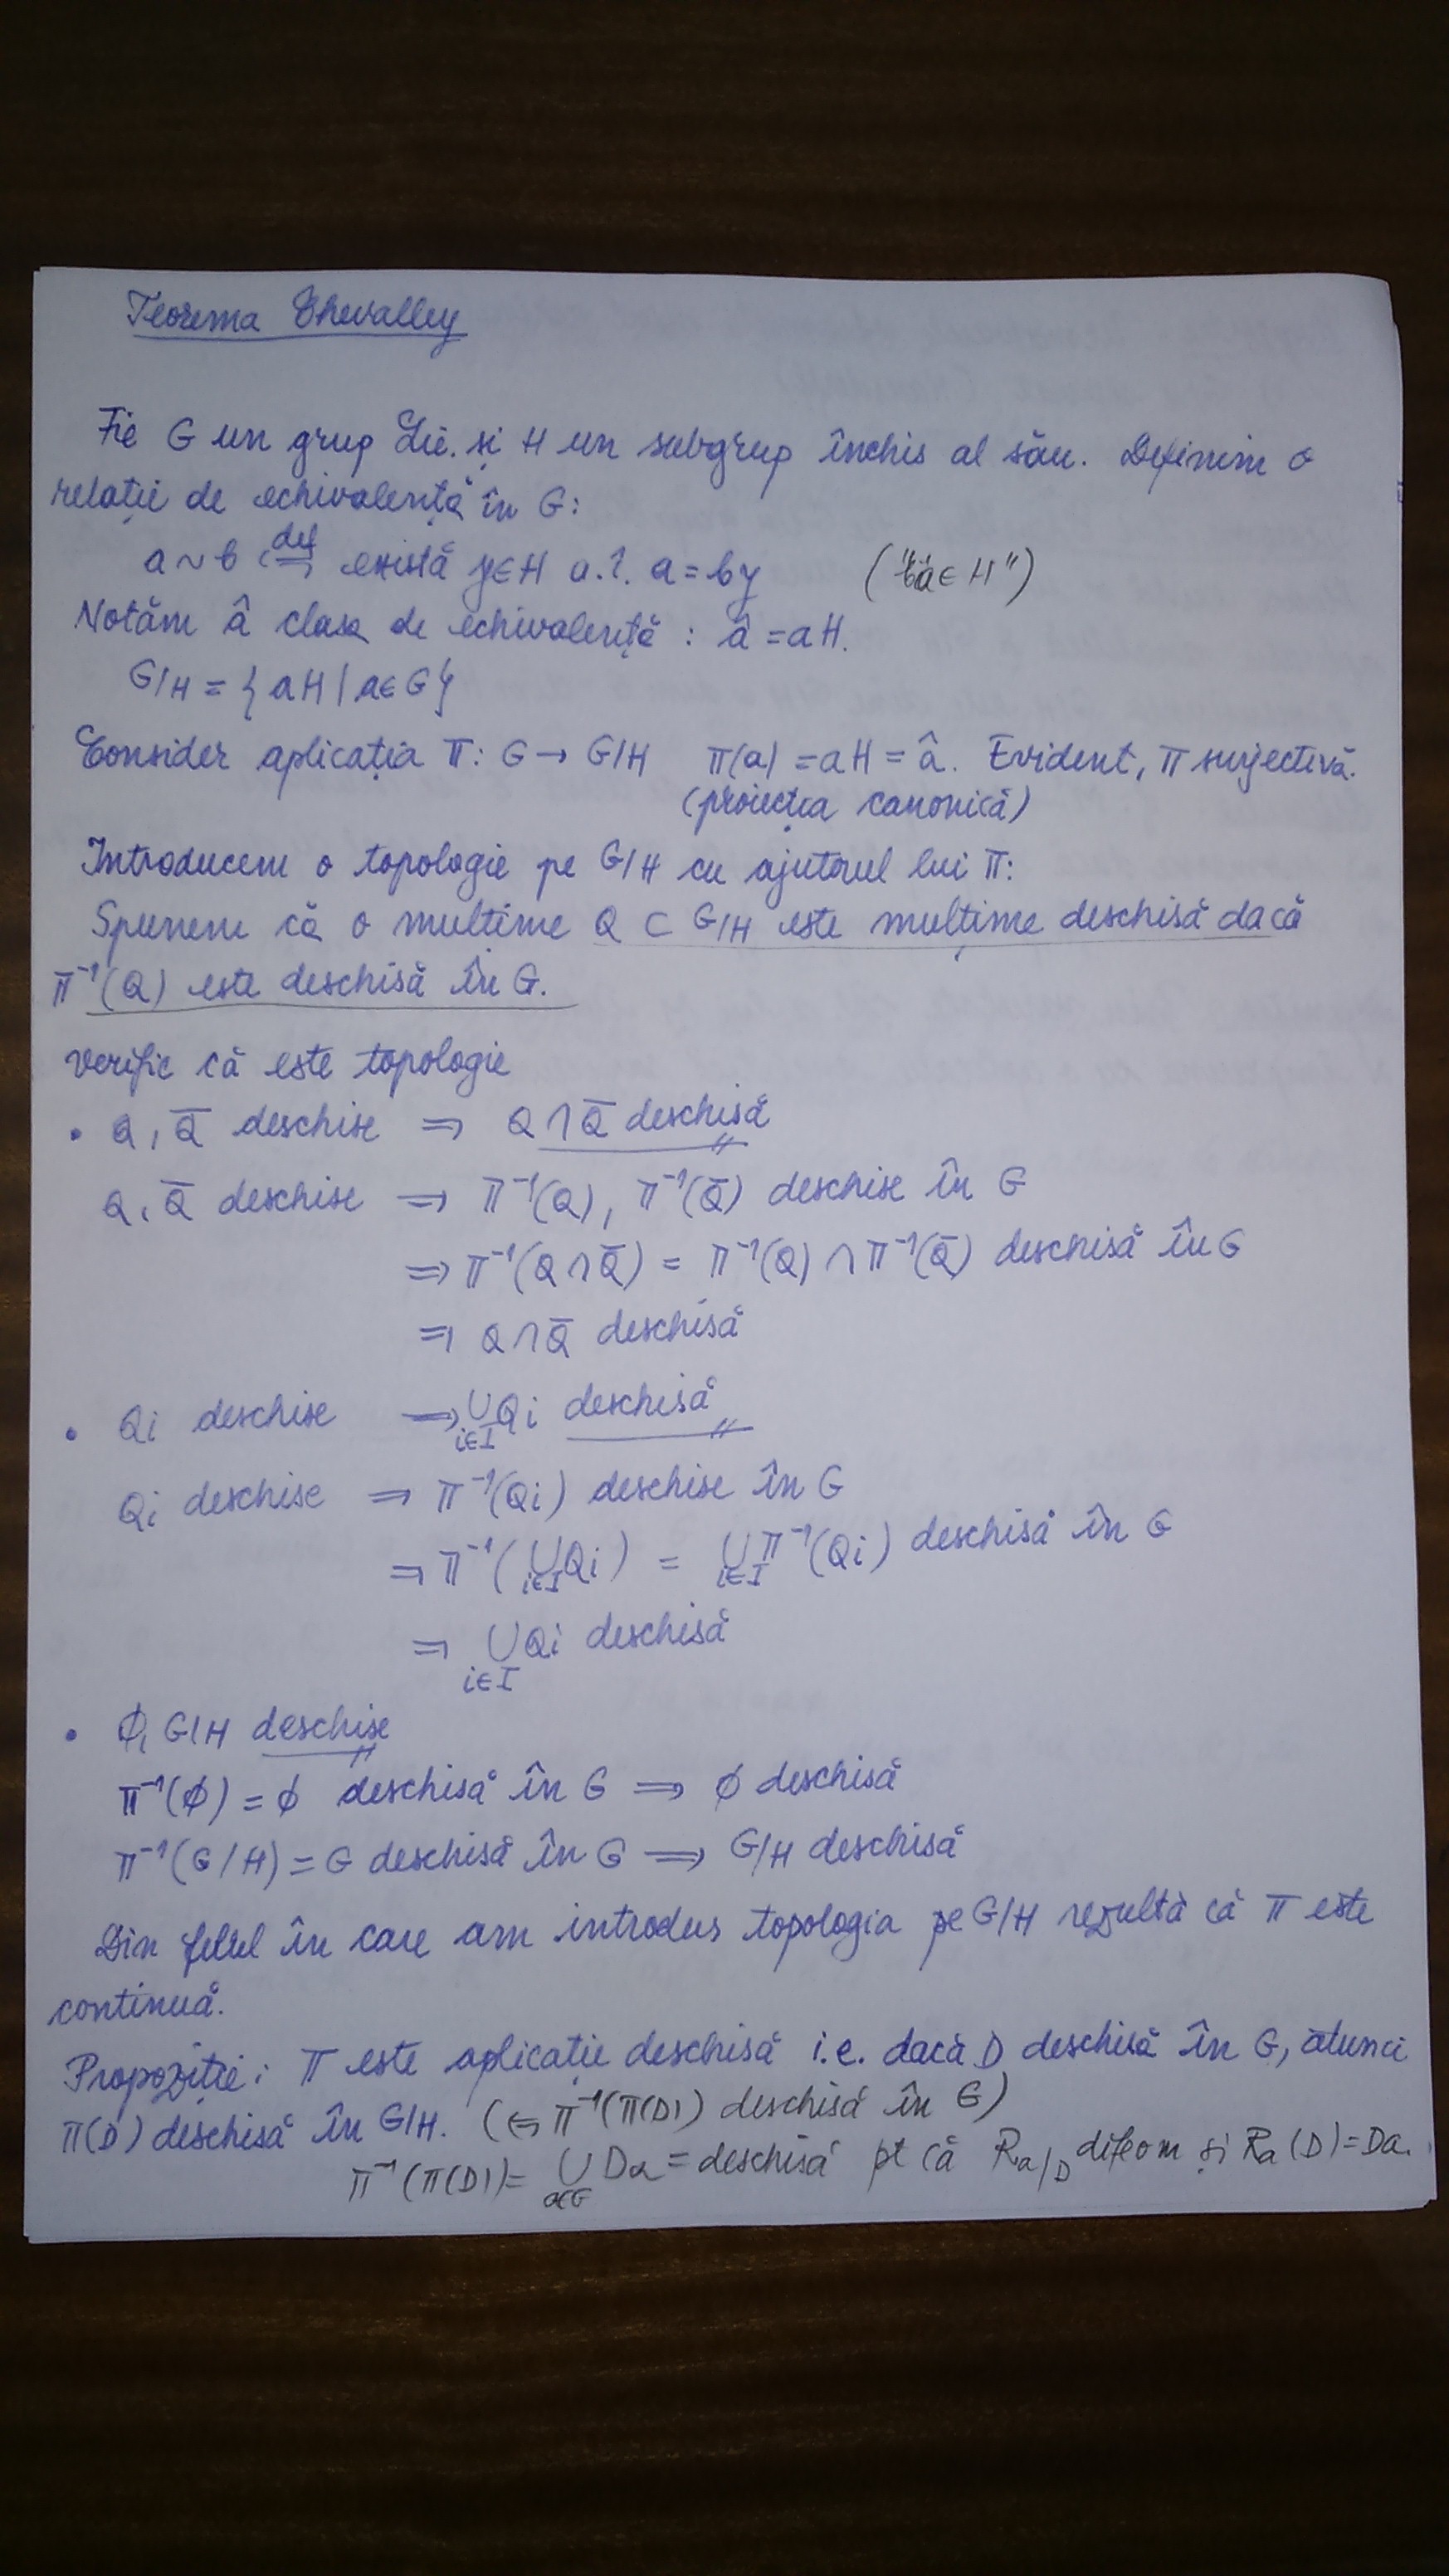 Teorema Chevalley
Fie G un grup Lie. și H un subgrup închis al său. Definim o
relație de echivalență în G:
a ~ b ⇔(def) există y∈H a.î. a = by ("b⁻¹a ∈ H")
Notăm â clasa de echivalență : â = aH.
G/H = { aH | a∈G}
Consider aplicația π: G → G/H π(a) = aH = â. Evident, π surjectivă.
(proiecția canonică)
Introducem o topologie pe G/H cu ajutorul lui π:
Spunem că o mulțime Q ⊂ G/H este mulțime deschisă dacă
π⁻¹(Q) este deschisă în G.
Verific că este topologie
• Q, Q̄ deschise ⇒ Q∩Q̄ deschisă
Q, Q̄ deschise ⇒ π⁻¹(Q), π⁻¹(Q̄) deschise în G
⇒ π⁻¹(Q∩Q̄) = π⁻¹(Q) ∩ π⁻¹(Q̄) deschisă în G
⇒ Q∩Q̄ deschisă
• Qi deschise ⇒ ∪_{i∈I} Qi deschisă
Qi deschise ⇒ π⁻¹(Qi) deschise în G
⇒ π⁻¹(∪_{i∈I} Qi) = ∪_{i∈I} π⁻¹(Qi) deschisă în G
⇒ ∪_{i∈I} Qi deschisă
• ∅, G/H deschise
π⁻¹(∅) = ∅ deschisă în G ⇒ ∅ deschisă
π⁻¹(G/H) = G deschisă în G ⇒ G/H deschisă
Din felul în care am introdus topologia pe G/H rezultă că π este
continuă.
Propoziție: π este aplicație deschisă i.e. dacă D deschisă în G, atunci
π(D) deschisă în G/H. (⇔ π⁻¹(π(D)) deschisă în G)
π⁻¹(π(D)) = ∪_{a∈G} Da = deschisă pt că Ra/D difeom și Ra(D) = Da.